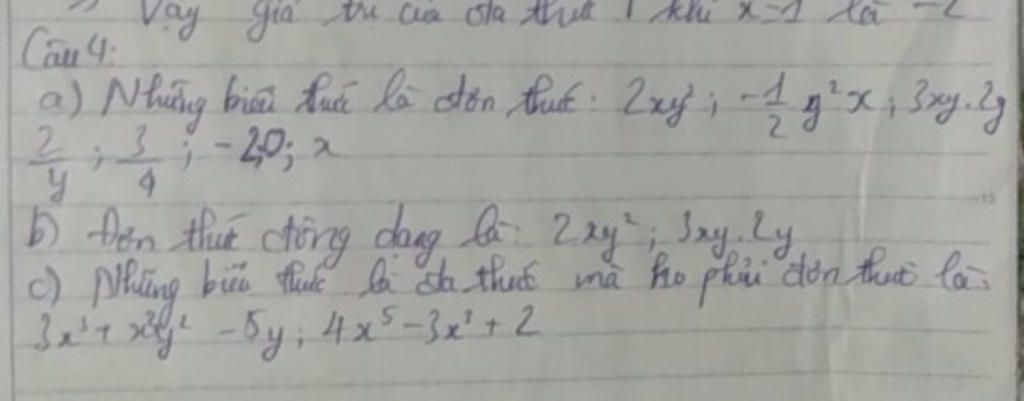 Vậy giá trị của đa thức khi x=1 là -2
Câu 4:
a) Những biểu thức là đơn thức: 2xy²; -1/2 y²x; 3xy.2y
2/y; 3/4; -2,0; x
b) Đơn thức đồng dạng là: 2xy²; 3xy.2y
c) Những biểu thức là đa thức mà ko phải đơn thức là:
3x³+x²y²-5y; 4x⁵-3x³+2